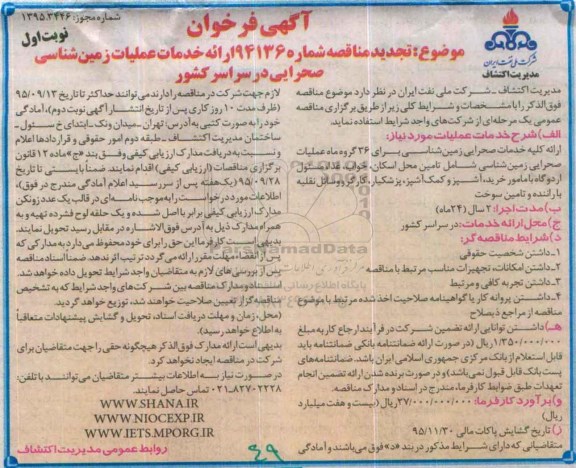 شماره مجوز: ۱۳۹۵.۳۴۲۶
آگهی فرخوان
نوبت اول
موضوع: تجدید مناقصه شماره ۹۴۱۳۶ ارائه خدمات عملیات زمین‌شناسی
صحرایی در سراسر کشور
شرکت ملی نفت ایران
مدیریت اکتشاف
مدیریت اکتشاف - شرکت ملی نفت ایران در نظر دارد موضوع مناقصه
فوق‌الذکر را با مشخصات و شرایط کلی زیر از طریق برگزاری مناقصه
عمومی یک مرحله‌ای از شرکت‌های واجد شرایط استفاده نماید.
الف) شرح خدمات عملیات مورد نیاز:
ارائه کلیه خدمات صحرایی زمین‌شناسی برای ۳۶ گروه ماه عملیات
صحرایی زمین‌شناسی شامل تامین محل اسکان، خوراک، غذا، مسئول
اردوگاه یا مامور خرید، آشپز و کمک آشپز، پزشکیار، کارگر و وسائل نقلیه
با راننده و تامین سوخت
ب) مدت اجرا: ۲ سال (۲۴ ماه)
ج) محل ارائه خدمات: در سراسر کشور
د) شرایط مناقصه گر:
۱- داشتن شخصیت حقوقی
۲- داشتن امکانات، تجهیزات مناسب مرتبط با مناقصه
۳- داشتن تجربه کافی و مرتبط
۴- داشتن پروانه کار یا گواهینامه صلاحیت اخذ شده مرتبط با موضوع
مناقصه از مراجع ذیصلاح
هـ) داشتن توانایی ارائه تضمین شرکت در فرآیند ارجاع کار به مبلغ
۱/۳۵۰/۰۰۰/۰۰۰ ریال (در صورت ارائه ضمانتنامه بانکی ضمانتنامه باید
قابل استعلام از بانک مرکزی جمهوری اسلامی ایران باشد. ضمانتنامه‌های
پست بانک قابل قبول نمی‌باشد) و در صورت برنده شدن ارائه تضمین انجام
تعهدات طبق ضوابط کارفرما، مندرج در اسناد و مدارک مناقصه.
و) برآورد کارفرما: ۲۷/۰۰۰/۰۰۰/۰۰۰ ریال (بیست و هفت میلیارد
ریال)
ز) تاریخ گشایش پاکات مالی ۹۵/۱۱/۳۰
متقاضیانی که دارای شرایط مذکور در بند «د» فوق می‌باشند و آمادگی
لازم جهت شرکت در مناقصه را دارند می‌توانند حداکثر تا تاریخ ۹۵/۰۹/۱۳
(ظرف مدت ۱۰ روز کاری پس از تاریخ انتشار آگهی نوبت دوم)، آمادگی
خود را به صورت کتبی به آدرس تهران - میدان ونک - ابتدای خ سئول -
ساختمان مدیریت اکتشاف - طبقه دوم امور حقوقی و قراردادها اعلام
و نسبت به دریافت مدارک ارزیابی کیفی وفق بند «ج» ماده ۱۲ قانون
برگزاری مناقصات (ارزیابی کیفی) اقدام نمایند. ضمناً بایستی تا تاریخ
۹۵/۰۹/۲۸ (یک هفته پس از سررسید اعلام آمادگی مندرج در فوق)،
اطلاعات مورد درخواست را به موجب نامه‌ای در قالب یک عدد زونکن
مدارک ارزیابی کیفی برابر با اصل شده و یک حلقه لوح فشرده تهیه و به
همراه مدارک ذیل به آدرس فوق‌الاشاره در مقابل رسید تحویل نمایند.
بدیهی است کارفرما این حق را برای خود محفوظ می‌دارد به مدارکی که
پس از انقضاء مهلت مقرر ارائه می‌گردد ترتیب اثر ندهد. ضمناً اسناد مناقصه
پس از بررسی‌های لازم به متقاضیان واجد شرایط تحویل داده خواهد شد.
اسناد و مدارک مناقصه بین شرکت‌های واجد شرایط که به تشخیص
مناقصه گزار تعیین صلاحیت خواهند شد، توزیع خواهد گردید
(محل، زمان و مهلت دریافت اسناد، تحویل و گشایش پیشنهادات متعاقباً
به اطلاع خواهد رسید).
بدیهی است ارائه مدارک فوق‌الذکر هیچگونه حقی را جهت متقاضیان برای
شرکت در مناقصه ایجاد نخواهد کرد.
در صورت نیاز به اطلاعات بیشتر متقاضیان می‌توانند با تلفن:
۸۲۷۰۲۲۲۸-۰۲۱ تماس حاصل نمایند.
WWW.SHANA.IR
WWW.NIOCEXP.IR
WWW.IETS.MPORG.IR
روابط عمومی مدیریت اکتشاف
ParsNamadData